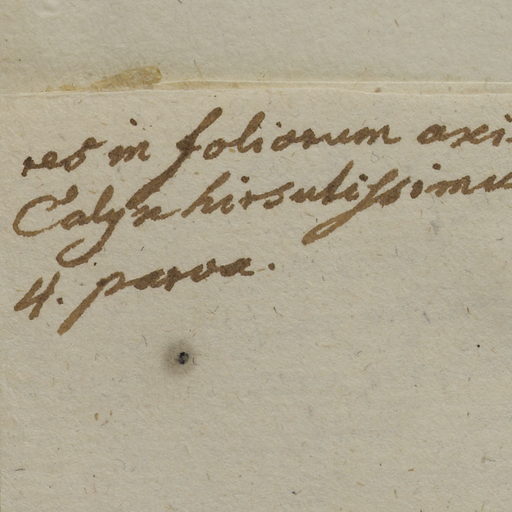 res in foliorum axi
Calyx hirsutissimu
4. parva.